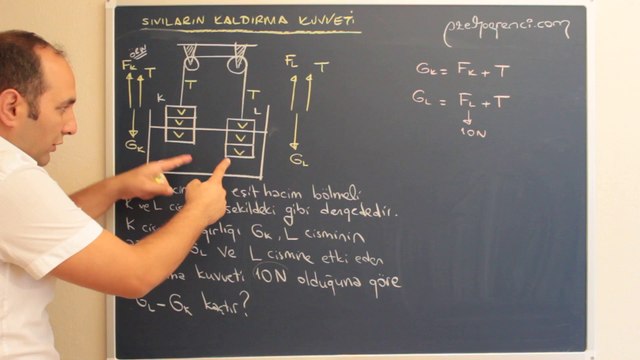 SIVILARIN KALDIRMA KUVVETİ
ozelhparenci.com
ÖRN
FK T
T T
FL T
K
L
V V V
V V V
GK
GL
GK = FK + T
GL = FL + T
10N
eşit hacim bölmeli
K ve L şekildeki gibi dengededir.
K GK, L cisminin
GL ve L cismine etki eden
kuvveti 10N olduğuna göre
GL - GK kaçtır?